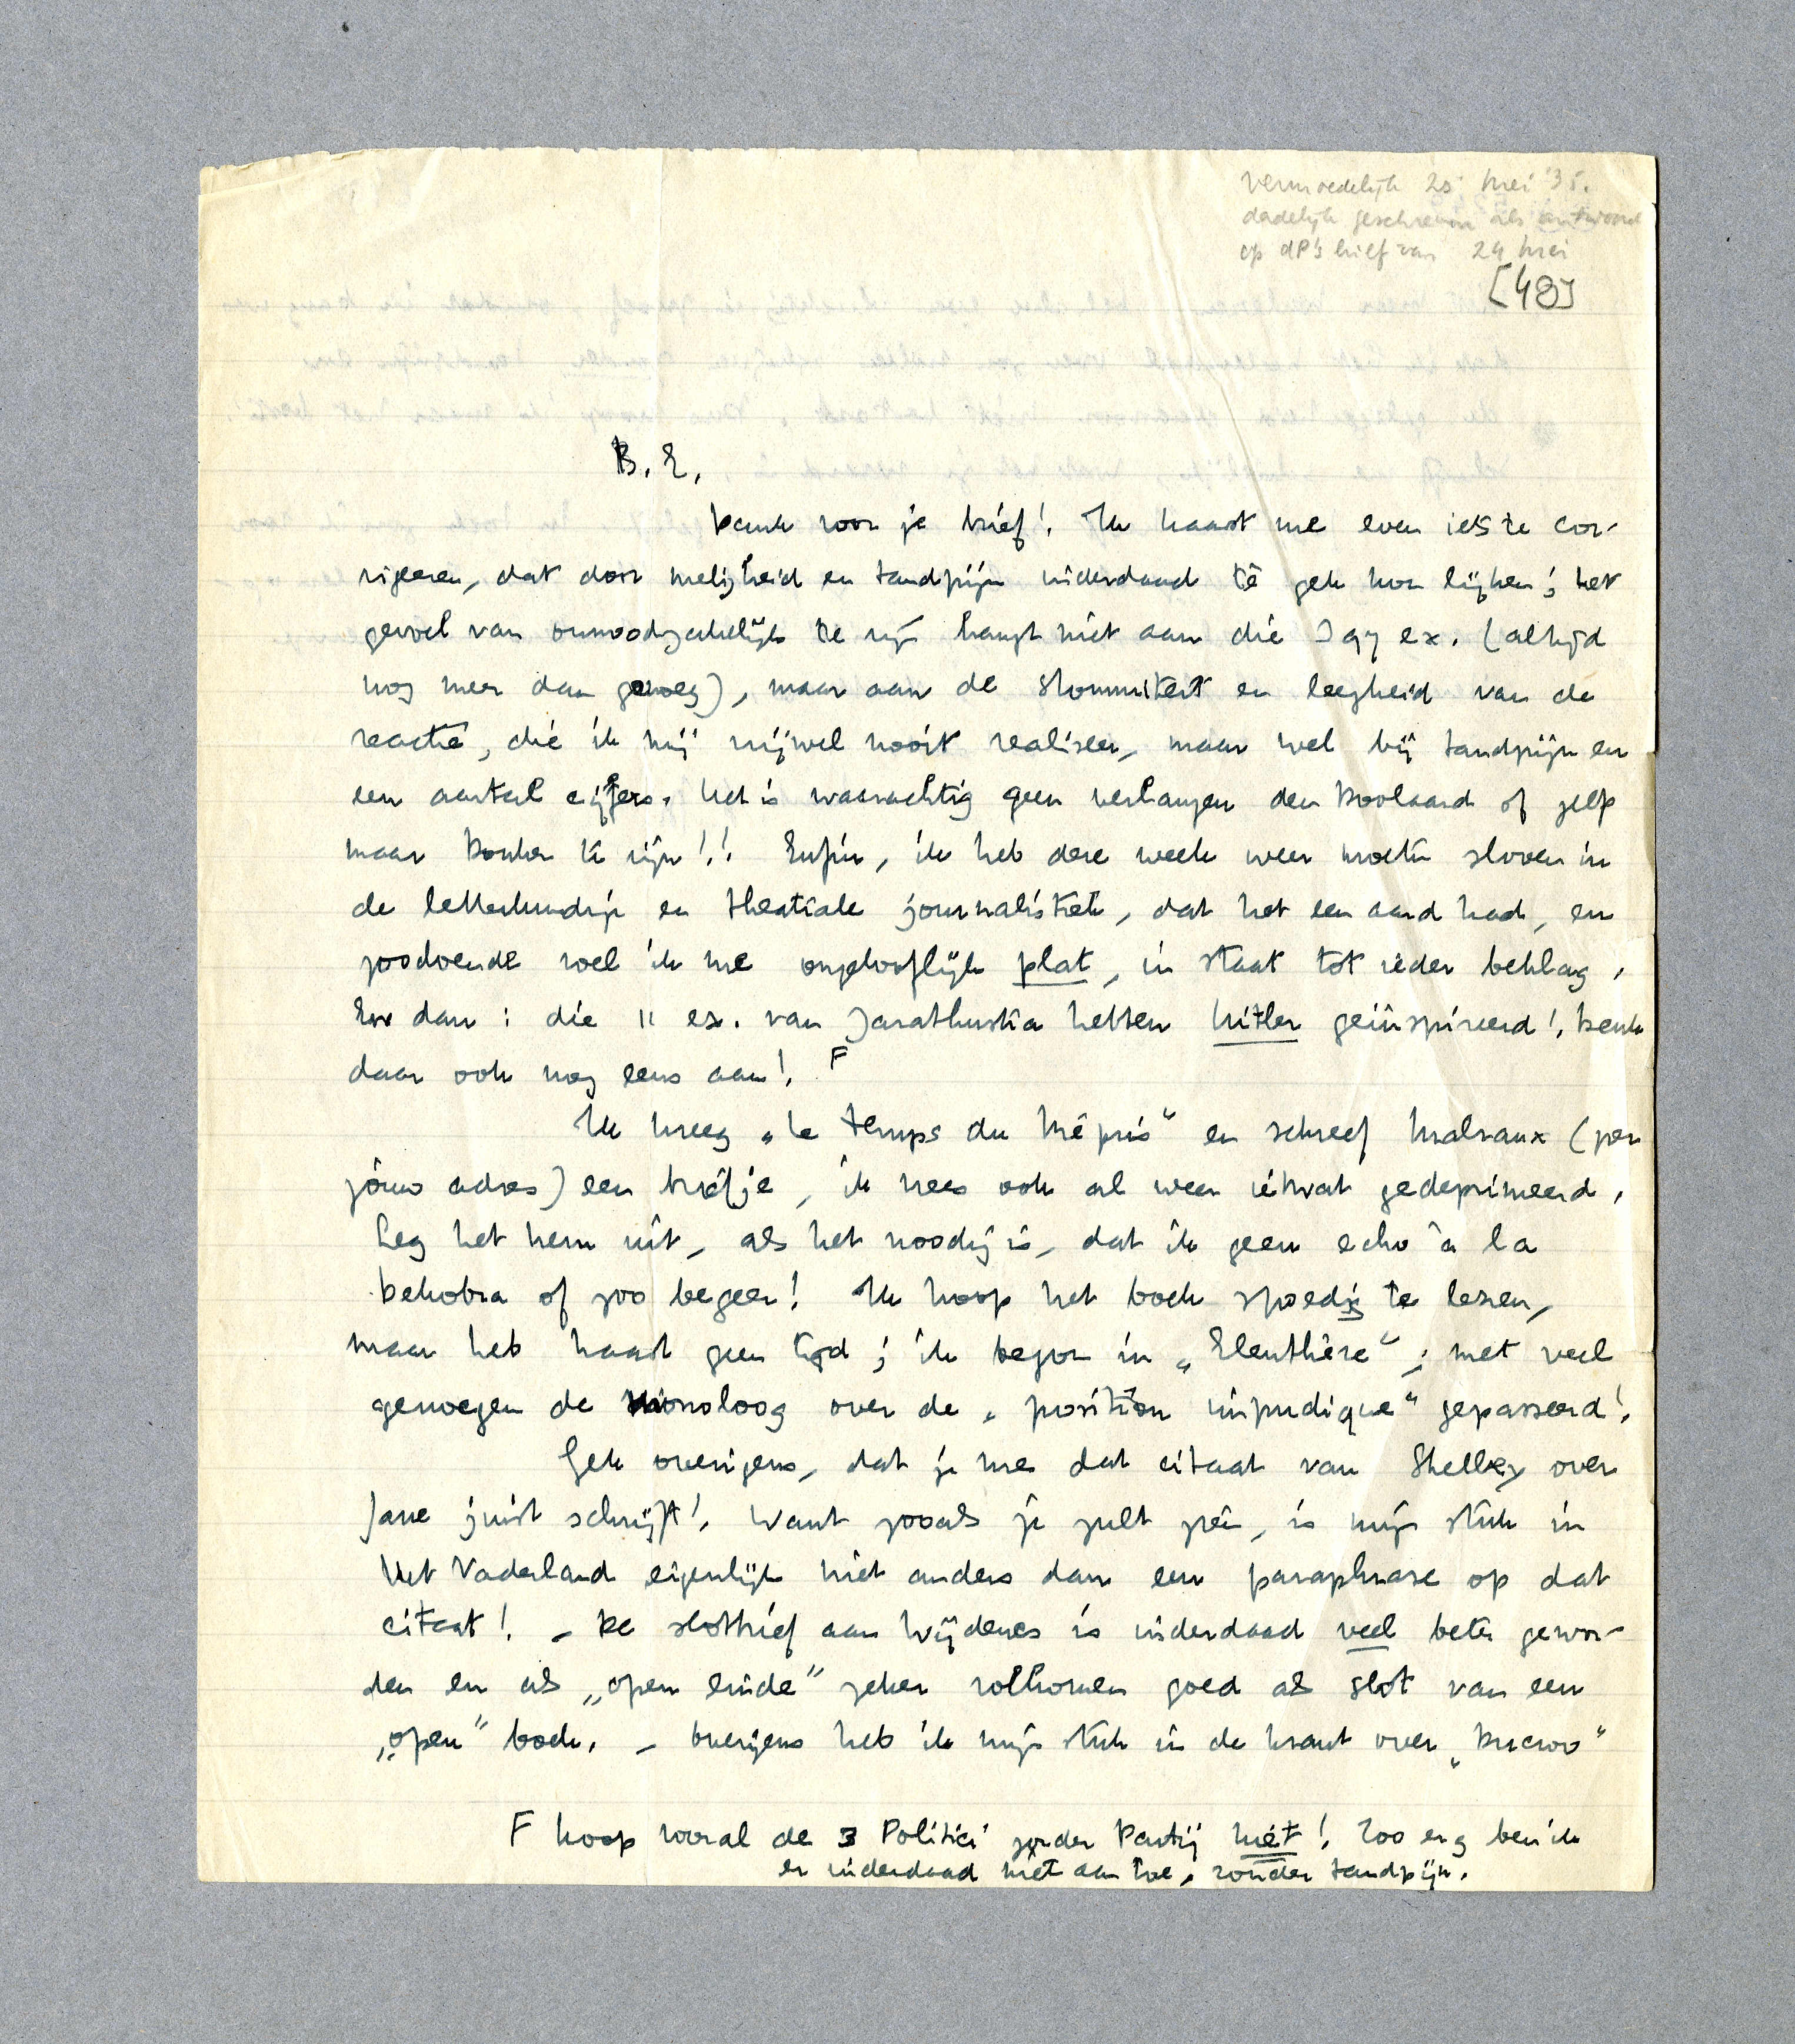 vermoedelijk 25 mei '35.
dadelijk geschreven als antwoord
op dP's brief van 24 mei
[48]
B. E.
Dank voor je brief! Ik haast me even iets te cor-
rigeeren, dat door meligheid en tandpijn inderdaad te gek kon lijken; het
gevoel van onnoodzakelijk te zijn hangt niet aan die ex. (altijd
nog meer dan genoeg), maar aan de stommiteit en leegheid van de
reactie, die ik mij vrijwel nooit realiseer, maar wel bij tandpijn en
een aantal cijfers. Het is waarachtig geen verlangen den Doolaard of zelp
maar Donker te zijn!! Enfin, ik heb deze week weer moeten sloven in
de letterkundige en theatrale journalistiek, dat het een aard had, en
zoodoende voel ik me ongelooflijk plat, in staat tot ieder beklag.
En dan: die 11 ex. van Zarathustra hebben Hitler geïnspireerd! Denk
daar ook nog eens aan! F
Ik kreeg „Le Temps du Mépris" en schreef Malraux (per
jouw adres) een briefje, ik vrees ook al weer ietwat gedeprimeerd.
Leg het hem uit, als het noodig is, dat ik geen echo à la
Dekobra of zoo begeer! Ik hoop het boek spoedig te lezen,
maar heb haast geen tijd; ik begon in „Eleuthère"; met veel
genoegen de monoloog over de „position impudique" gepasseerd!
Gek overigens, dat je me dat citaat van Shelley over
Jane juist schrijft! Want zooals je zult zien, is mijn stuk in
Het Vaderland eigenlijk niet anders dan een paraphrase op dat
citaat! – De slotbrief aan Wijdenes is inderdaad veel beter gewor-
den en als „open einde" zeker volkomen goed als slot van een
„open" boek. – Overigens heb ik mijn stuk in de krant over „Ducroo"
F Koop vooral de 3 Politici zonder Partij niet! Zoo erg ben ik
er inderdaad niet aan toe, zonder tandpijn.